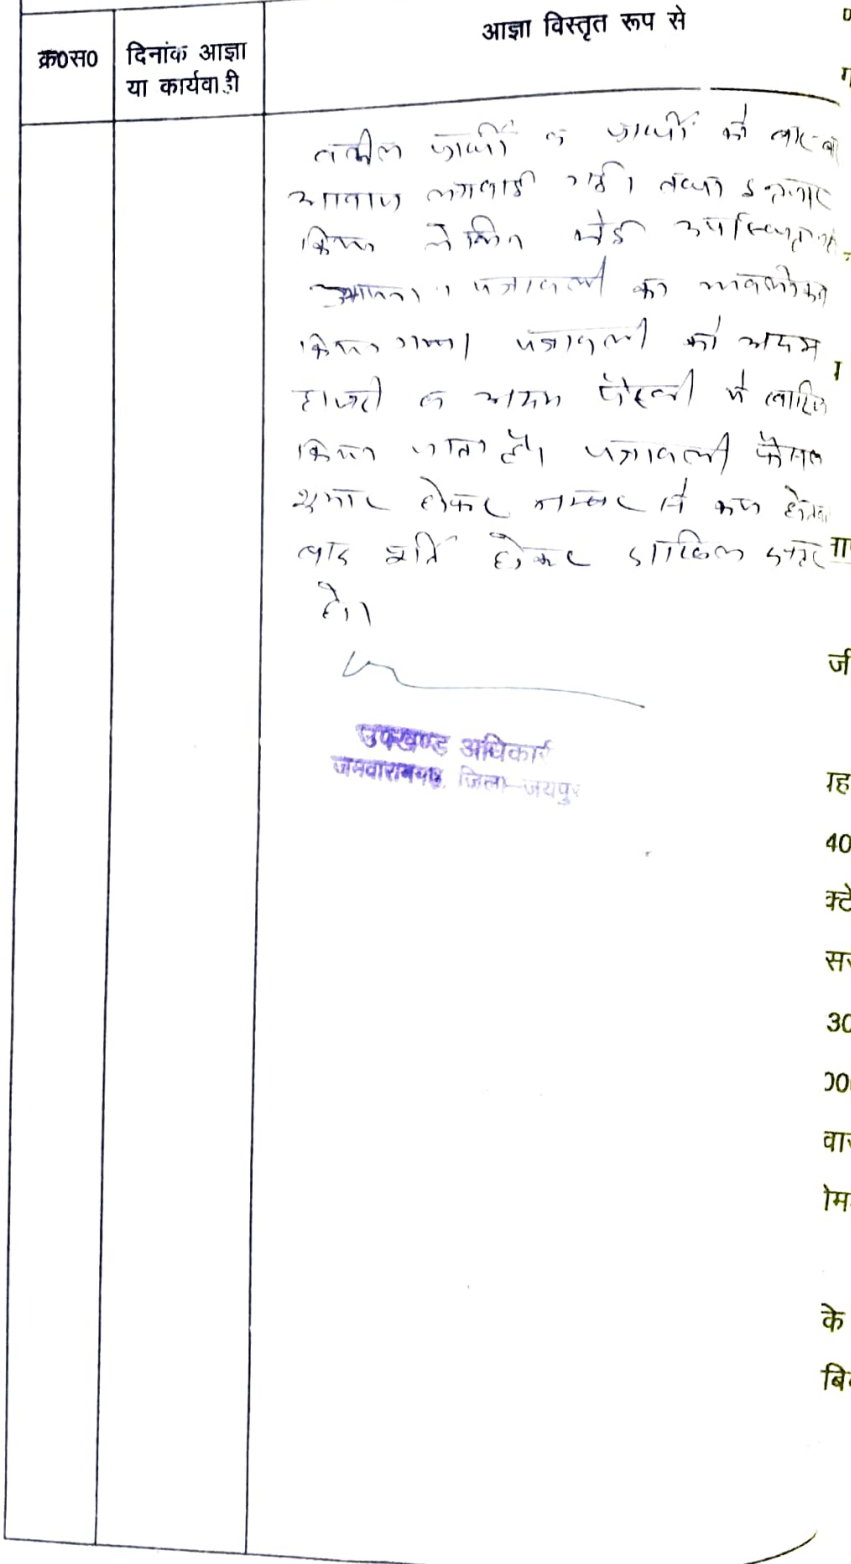 क्र०स०
दिनांक आज्ञा
या कार्यवाही
आज्ञा विस्तृत रूप से
वकील प्रार्थी व प्रार्थी को बार-बार
आवाज लगवाई गई। तथा इन्तजार
किया लेकिन कोई उपस्थित नहीं
आया। पत्रावली का अवलोकन
किया गया। पत्रावली को अदम
हाजरी व अदम पैरवी में खारिज
किया जाता है। पत्रावली फैसल
शुमार होकर नम्बर से कम होकर
बाद पूर्ति होकर दाखिल दफ्तर
हो।
उपखण्ड अधिकारी
जमवारामगढ़, जिला-जयपुर
र्ज
40
क्टे
30
के